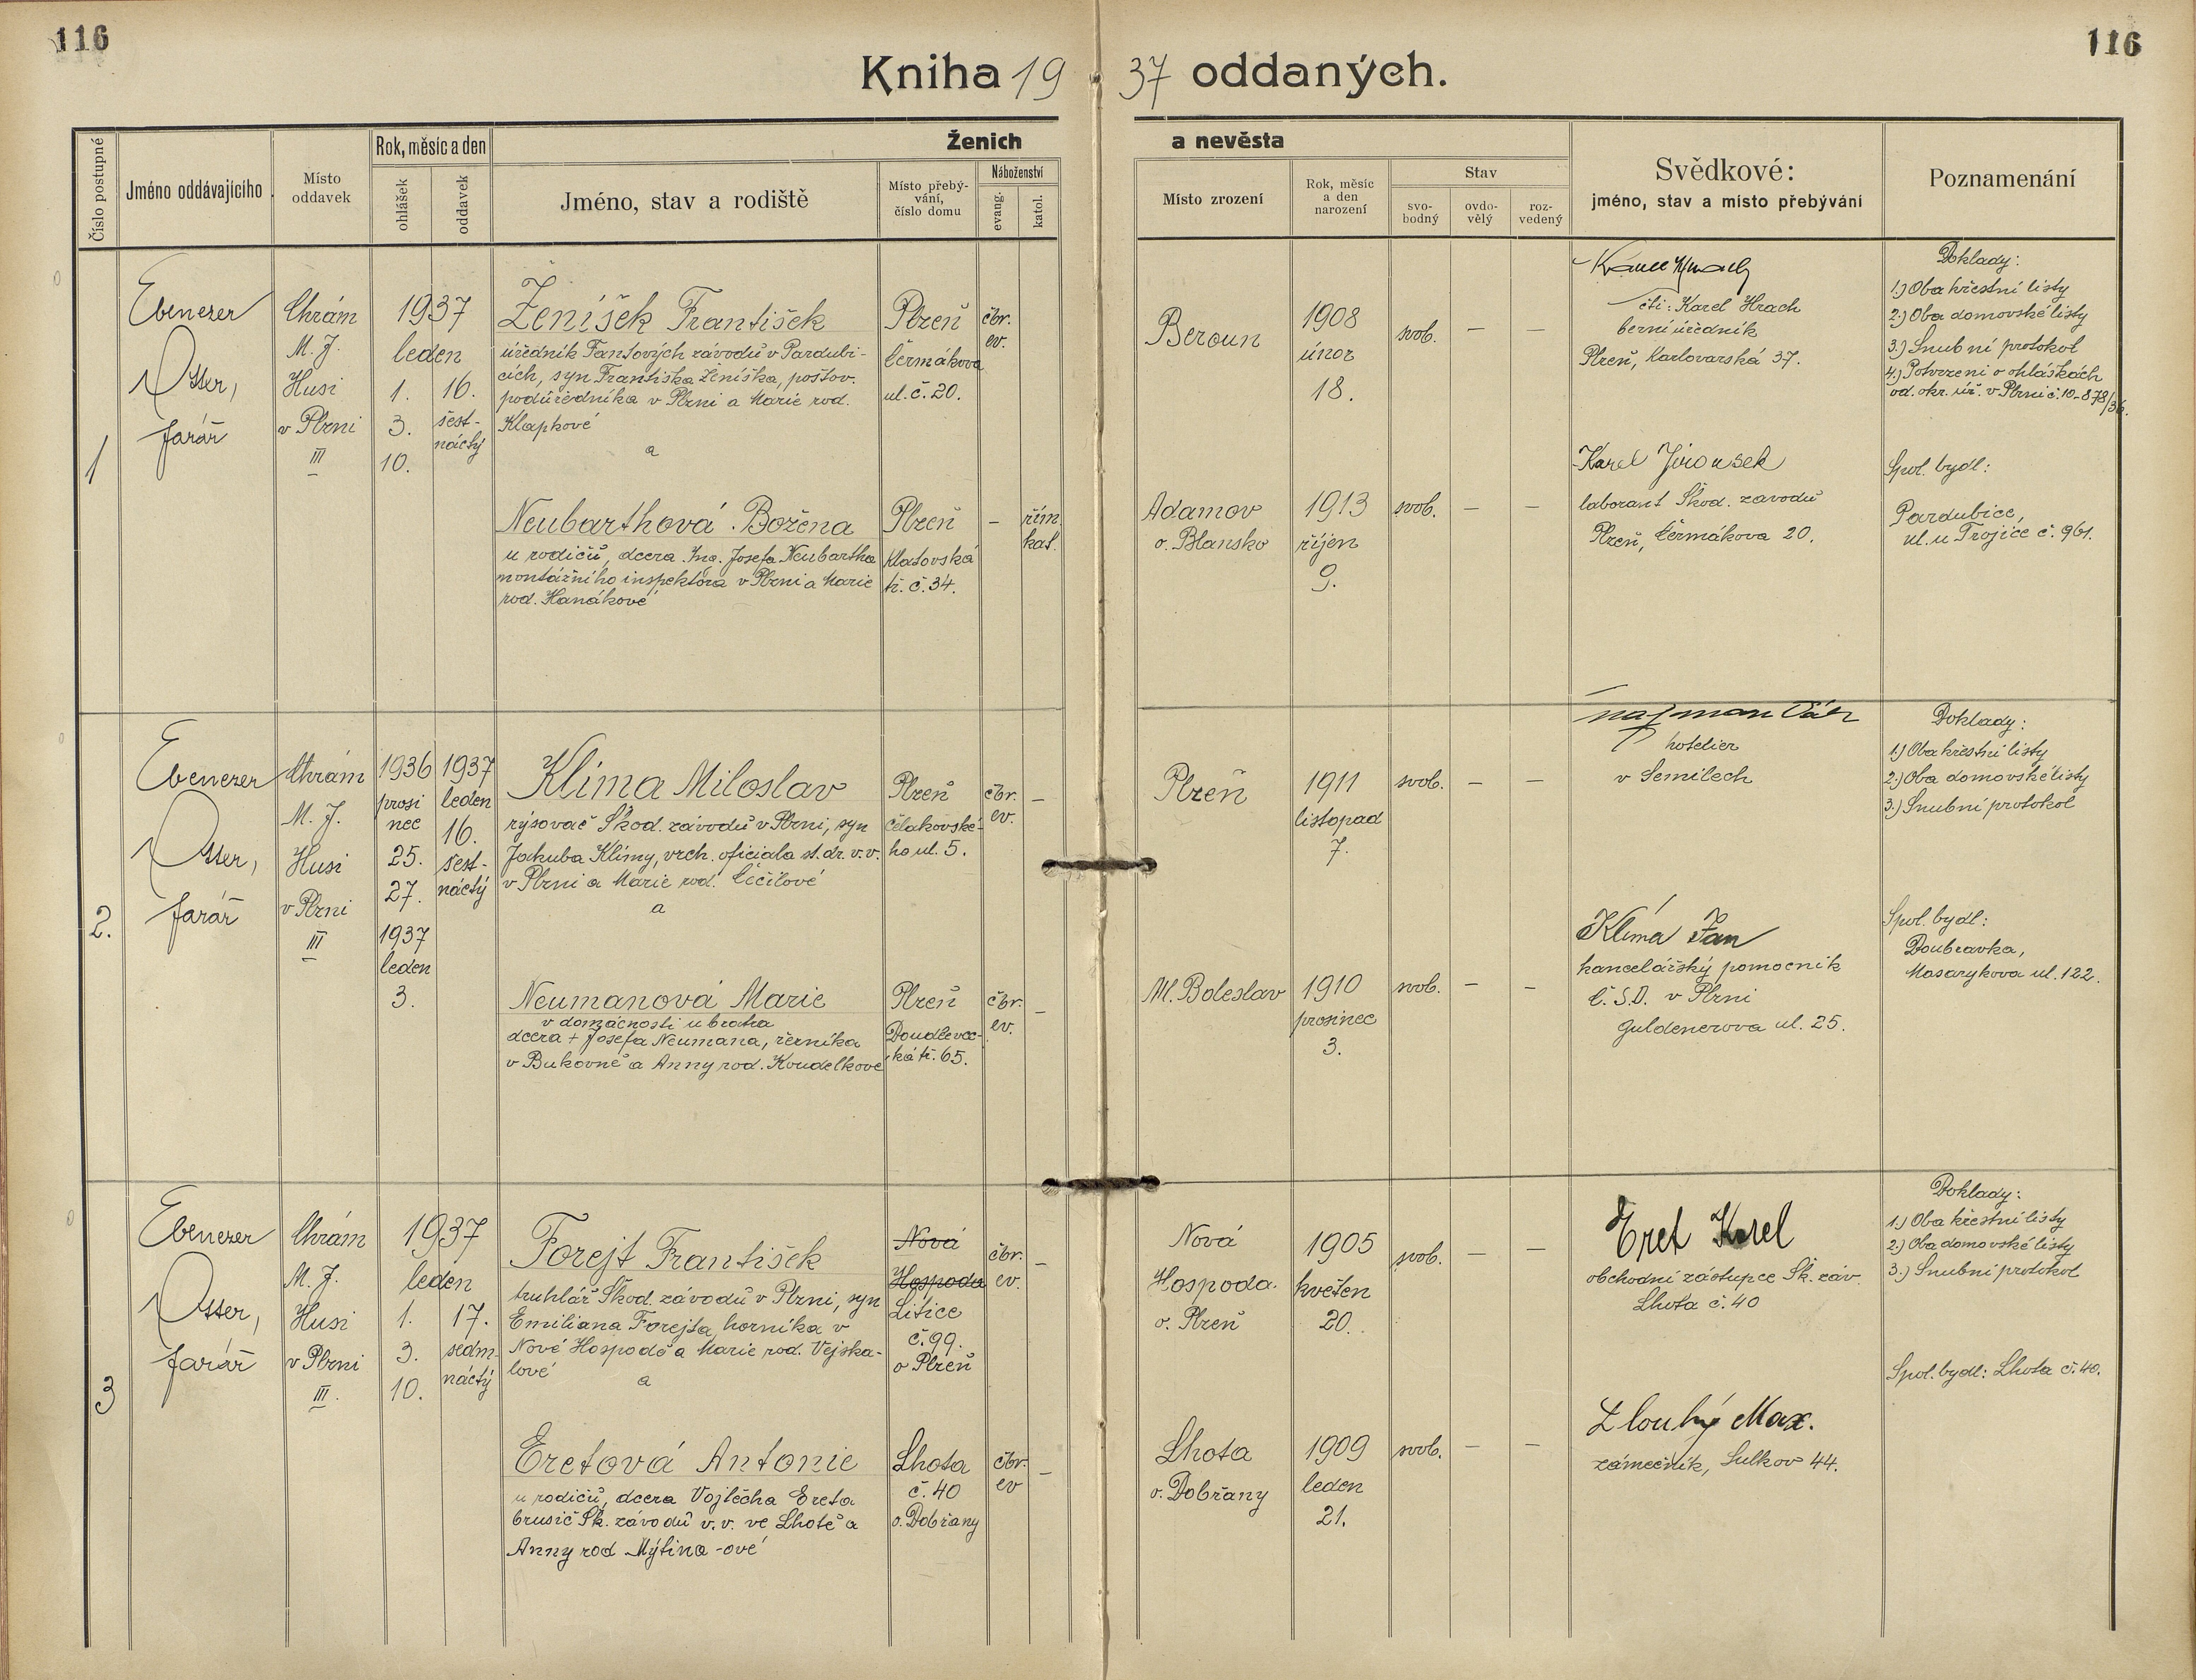 116
116
Kniha 1937 oddaných.
Číslo postupné
Jméno oddávajícího
Místo oddavek
Rok, měsíc a den
ohlášek
oddavek
Ženich
a nevěsta
Jméno, stav a rodiště
Místo přebý-
vání,
číslo domu
Náboženství
evang.
katol.
Místo zrození
Rok, měsíc
a den
narození
Stav
svo-
bodný
ovdo-
vělý
roz-
vedený
Svědkové:
jméno, stav a místo přebývání
Poznamenání
1
Ebenezer
Otter,
farář
Chrám
M. J.
Husi
v Plzni
III
1937
leden
1.
3.
10.
16.
šest-
náctý
Ženíšek František
úředník Fantových závodů v Pardubi-
cích, syn Františka Ženíška, poštov.
podúředníka v Plzni a Marie rod.
Klapkové
a
Plzeň
Čermákova
ul. č. 20.
čbr.
ev.
Beroun
1908
únor
18.
svob.
—
—
čti: Karel Hrach
berní úředník
Plzeň, Karlovarská 37.
Doklady:
1.) Oba křestní listy
2.) Oba domovské listy
3.) Snubní protokol
4.) Potvrzení o ohláškách
od. okr. úř. v Plzni č. 10-878/36.
Neubarthová Božena
u rodičů, dcera Ing. Josefa Neubartha
montážního inspektora v Plzni a Marie
rod. Hanákové
Plzeň
Klatovská
tř. č. 34.
–
řím.
kat.
Adamov
o. Blansko
1913
říjen
9.
svob.
—
—
Karel Jirousek
laborant Škod. závodů
Plzeň, Čermákova 20.
Spol. bydl:
Pardubice,
ul. u Trojice č. 961.
2.
Ebenezer
Otter,
farář
Chrám
M. J.
Husi
v Plzni
III
1936
prosi
nec
25.
27.
1937
leden
3.
1937
leden
16.
šest-
náctý
Klíma Miloslav
rýsovač Škod. závodů v Plzni, syn
Jakuba Klímy, vrch. oficiala st. dr. v. v.
v Plzni a Marie rod. Čečilové
a
Plzeň
Čelakovské-
ho ul. 5.
čbr.
ev.
–
Plzeň
1911
listopad
7.
svob.
—
—
hotelier
v Semilech
Doklady:
1.) Oba křestní listy
2.) Oba domovské listy
3.) Snubní protokol
Neumanová Marie
v domácnosti u bratra
dcera + Josefa Neumana, řezníka
v Bukovně a Anny rod. Koudelkové
Plzeň
Doudlevec-
ká tř. 65.
čbr.
ev.
–
M. Boleslav
1910
prosinec
3.
svob.
—
–
Klíma Jan
kancelářský pomocník
Č. S. D. v Plzni
Guldenerova ul. 25.
Spol. bydl:
Doubravka,
Masarykova ul. 122.
3
Ebenezer
Otter,
farář
Chrám
M. J.
Husi
v Plzni
III.
1937
leden
1.
3.
10.
17.
sedm-
náctý
Forejt František
truhlář Škod. závodů v Plzni, syn
Emiliana Forejta, horníka v
Nové Hospodě a Marie rod. Vejska-
lové
a
Nová
Hospoda
Litice
č. 99.
o Plzeň
čbr.
ev.
–
Nová
Hospoda.
o. Plzeň
1905
květen
20.
svob.
—
—
Eret Karel
obchodní zástupce Šk. záv.
Lhota č. 40
Doklady:
1.) Oba křestní listy
2.) Oba domovské listy
3.) Snubní protokol
Spol. bydl: Lhota č. 40.
Eretová Antonie
u rodičů, dcera Vojtěcha Ereta
brusič Šk. závodů v. v. ve Lhotě a
Anny rod Mýtina-ové
Lhota
č. 40
o. Dobřany
čbr.
ev
–
Lhota
o. Dobřany
1909
leden
21.
svob.
—
—
Dlouhý Max.
zámečník, Sulkov 44.